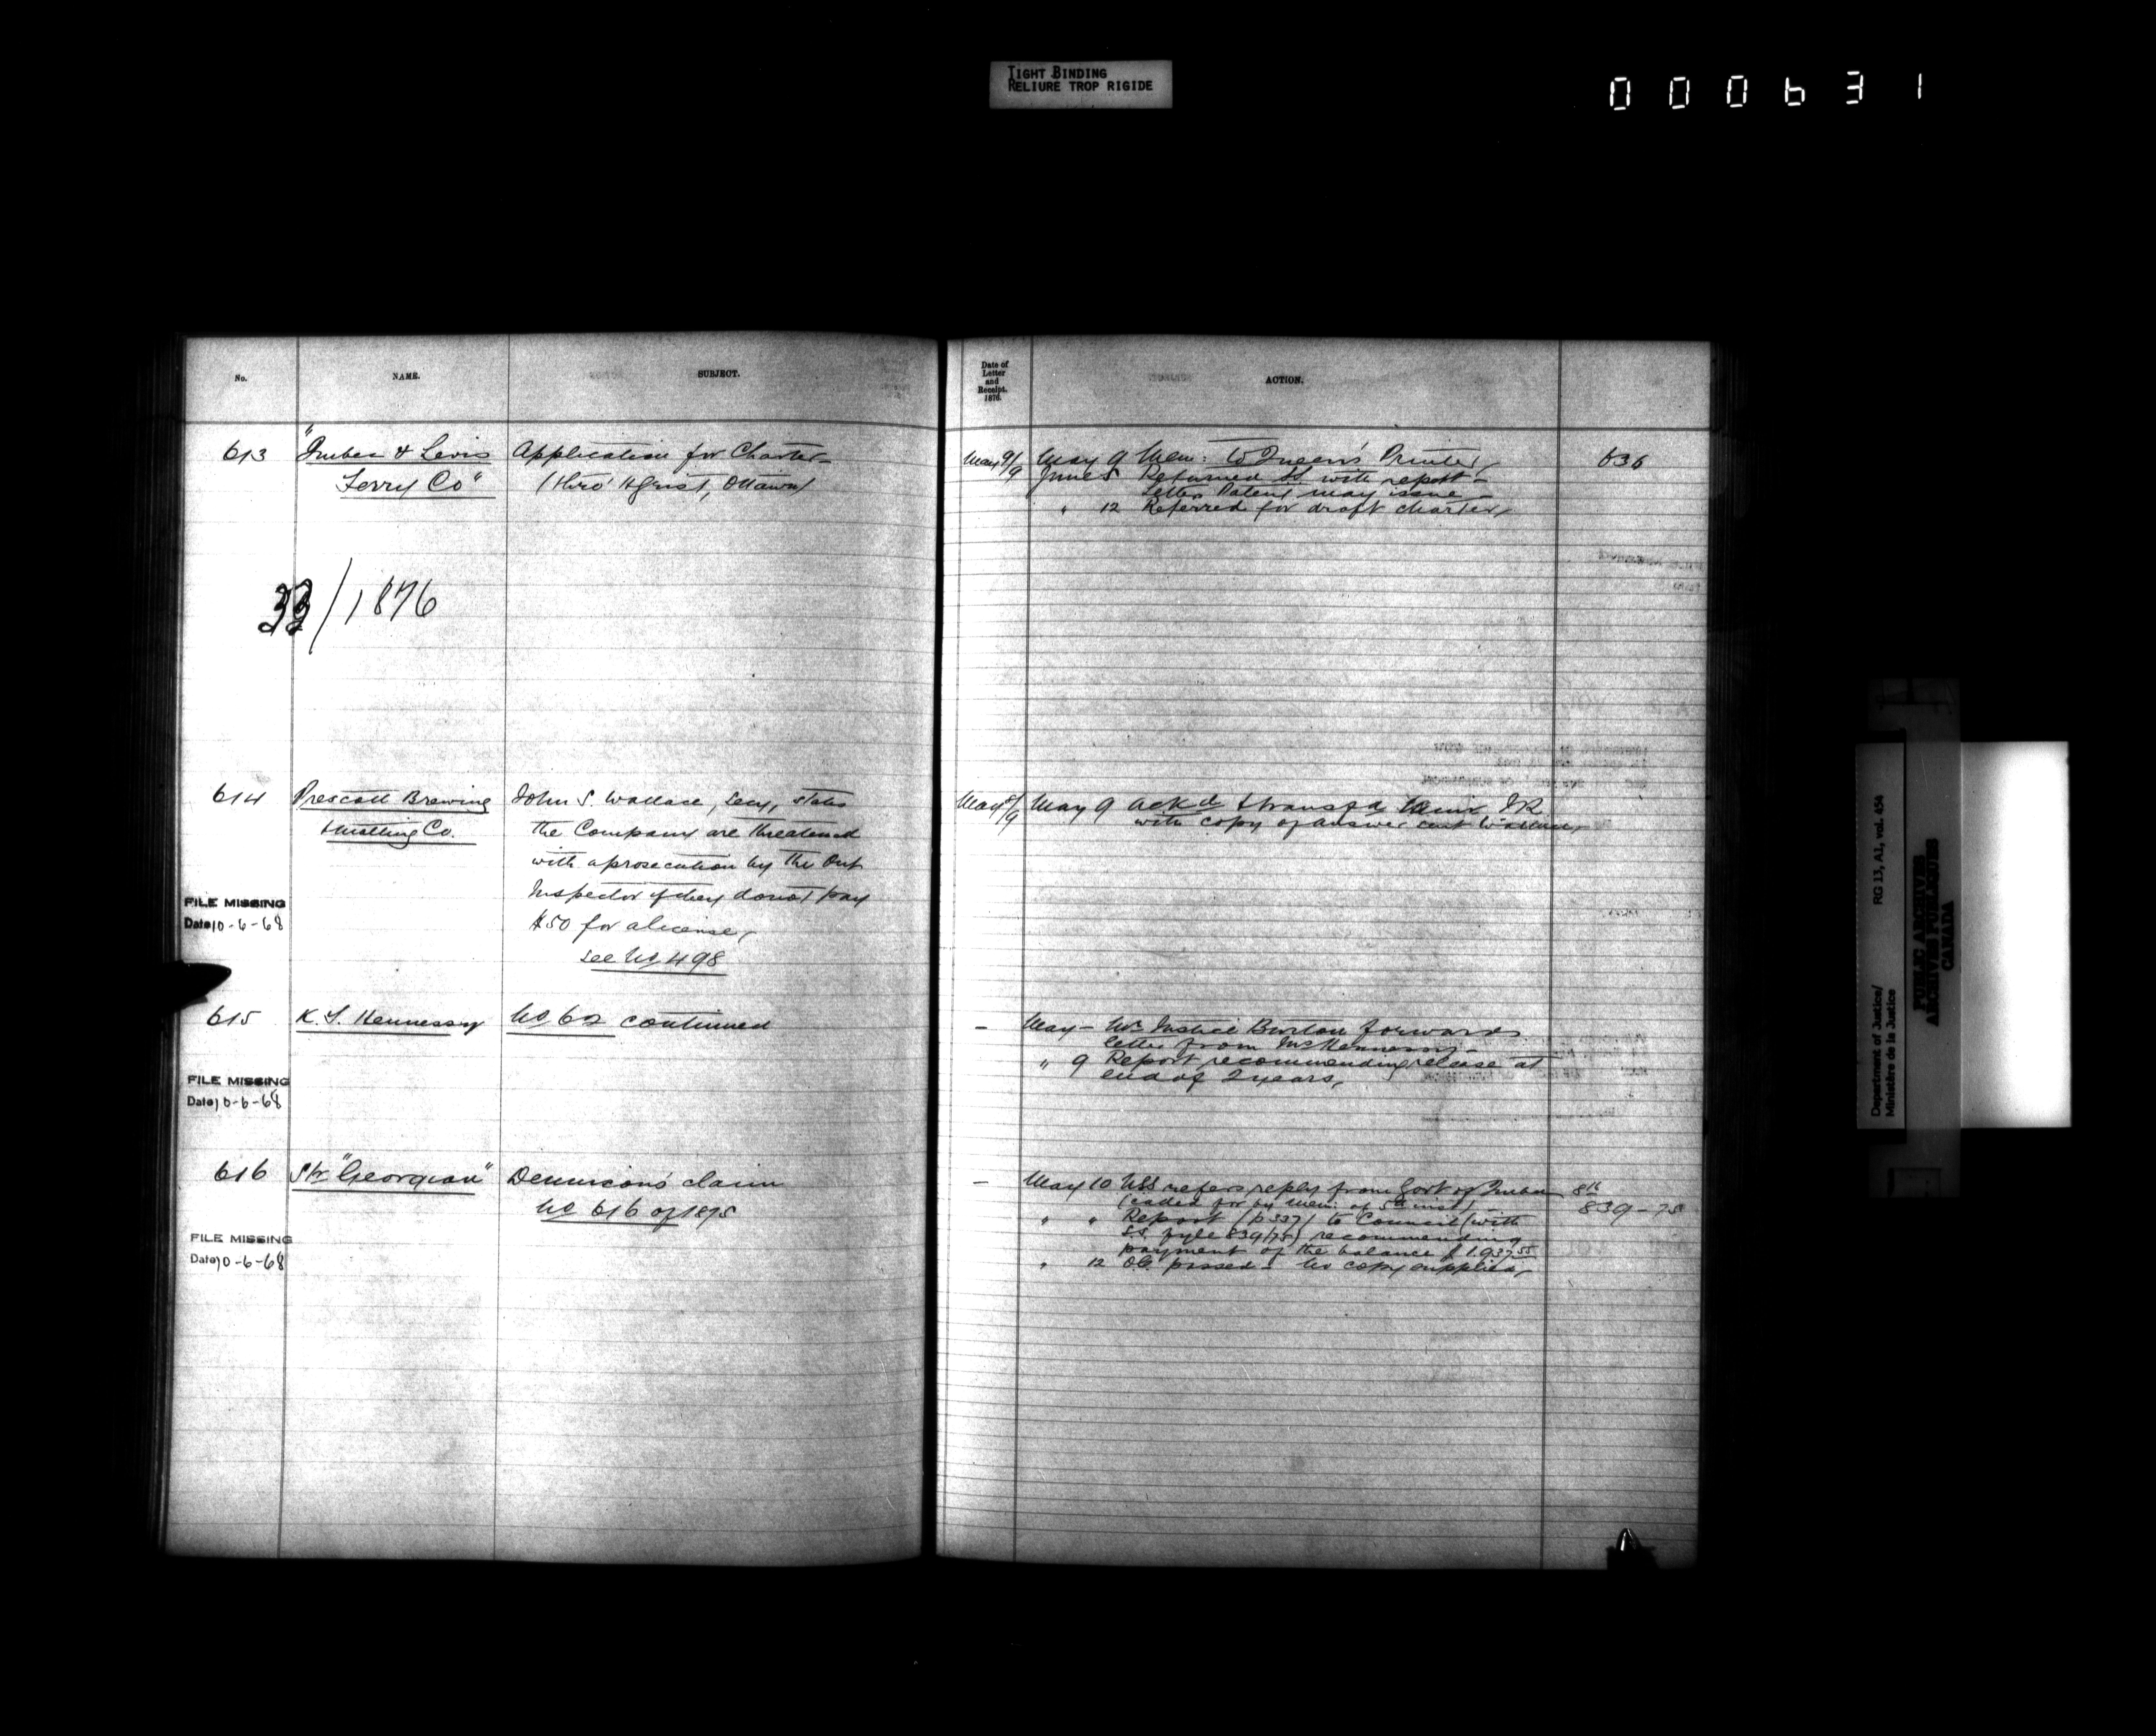 TIGHT BINDING
RELIURE TROP RIGIDE
000631
No.
NAME.
SUBJECT.
Date of
Letter
and
Receipt.
1876.
ACTION.
613
"Quebec & Levis
Ferry Co"
Application for Charter
(thro' H Grist, Ottawa)
May 9/9
May 9 Mem: to Queen's Printer,
June 5 Returned SS with report
Letters Patent may issue
" 12 Referred for draft charter,
636
/1876
614
Prescott Brewing
& Malting Co.
John S. Wallace, Secy, states
the Company are threatened
with a prosecution by the Ont
Inspector if they do not pay
$50 for a license,
see No 498
May 8/9
May 9 ackd & transfd Comr IR
with copy of answer sent Wallace,
FILE MISSING
Date 10-6-68
615
K. S. Hennessy
No 62 continued
–
May – Mr Justice Burton forwards
letter from Mc Hennessy –
" 9 Report recommending release at
end of 2 years,
FILE MISSING
Date 10-6-68
616
Str "Georgian"
Dennison's claim
No 616 of 1875
–
May 10 USS refers reply from Govt of Quebec
(called for by mem: of 5th inst)
" " Report (p 337) to Council (with
SS. fyle 839/75) recommending
payment of the balance $1.937.55
" 12 O.C. passed – No copy supplied,
816
839-75
FILE MISSING
Date 10-6-68
Department of Justice/
Ministère de la Justice
RG 13, A1, vol. 454
PUBLIC ARCHIVES
ARCHIVES PUBLIQUES
CANADA